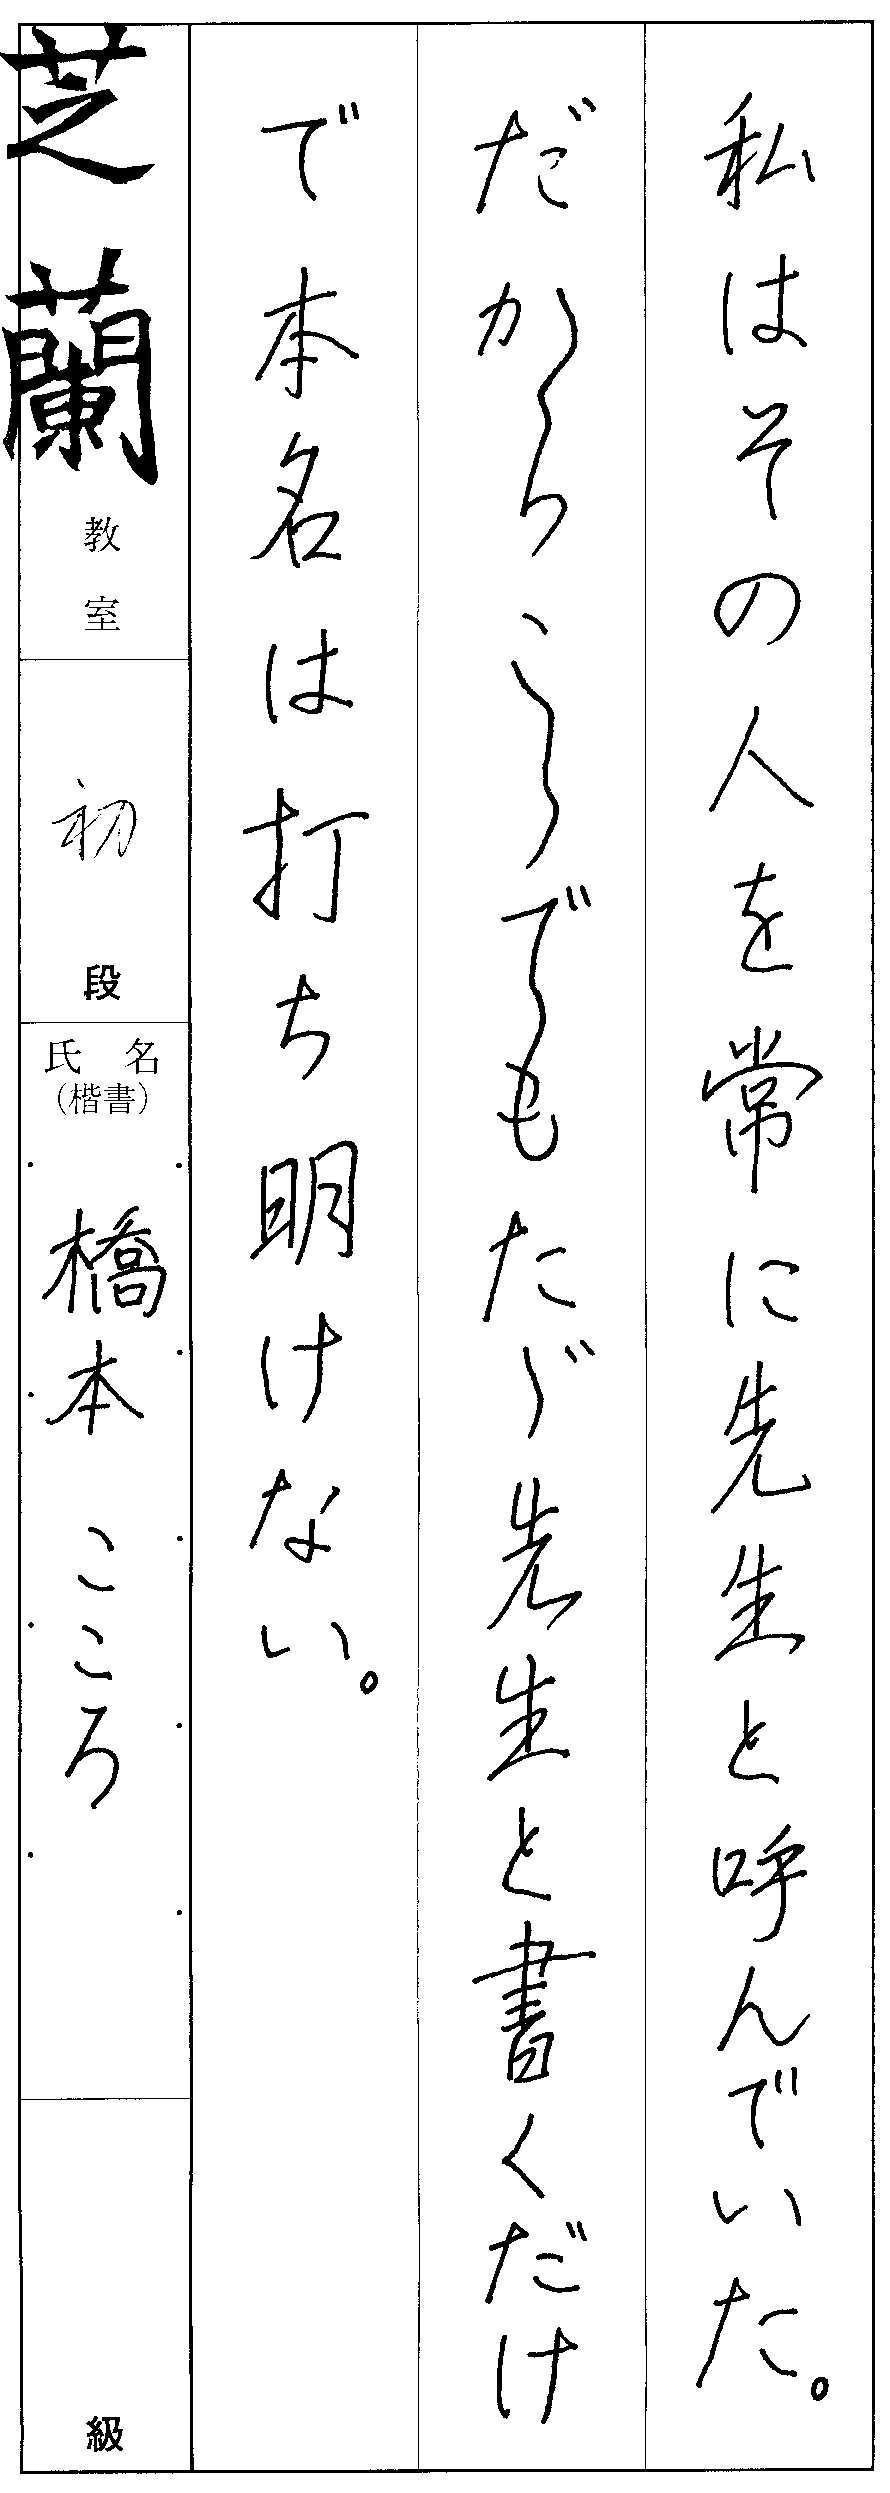 私はその人を常に先生と呼んでいた。
だからこゝでもたゞ先生と書くだけ
で本名は打ち明けない。
芝蘭教室
初段
氏名(楷書)
橋本こころ
級